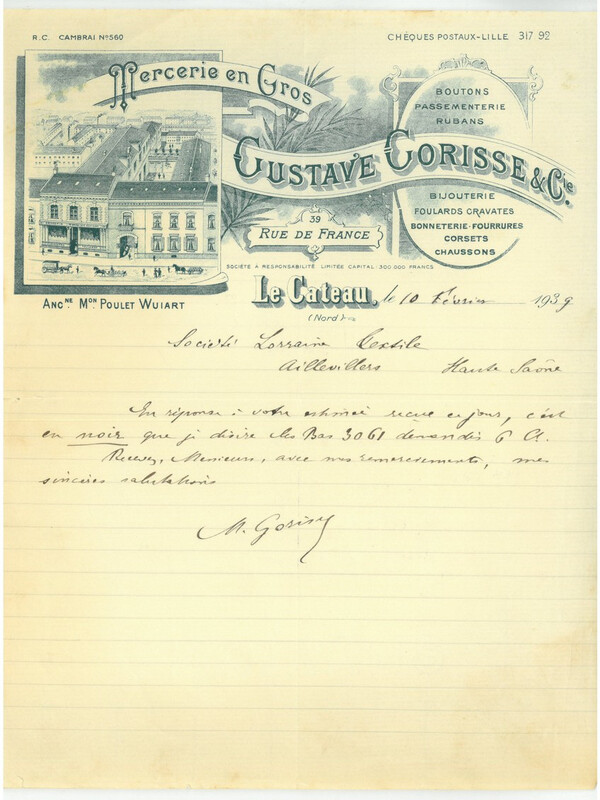 R.C. CAMBRAI Nº560
CHÈQUES POSTAUX-LILLE 317 92
Mercerie en Gros
BOUTONS
PASSEMENTERIE
RUBANS
GUSTAVE GORISSE & Cie.
39
RUE DE FRANCE
BIJOUTERIE
FOULARDS CRAVATES
BONNETERIE-FOURRURES
CORSETS
CHAUSSONS
SOCIÉTÉ A RESPONSABILITÉ LIMITÉE CAPITAL 300.000 FRANCS
Le Cateau, le 10 Février 1939
(Nord)
ANCNE. MON POULET WUIART
Société Lorraine Textile
Aillevillers Haute Saône
En réponse à votre estimée reçue ce jour, c'est
en noir que je désire les Bas 3061 demandés 6
Recevez, Messieurs, avec mes remerciements, mes
sincères salutations
M. Goriss